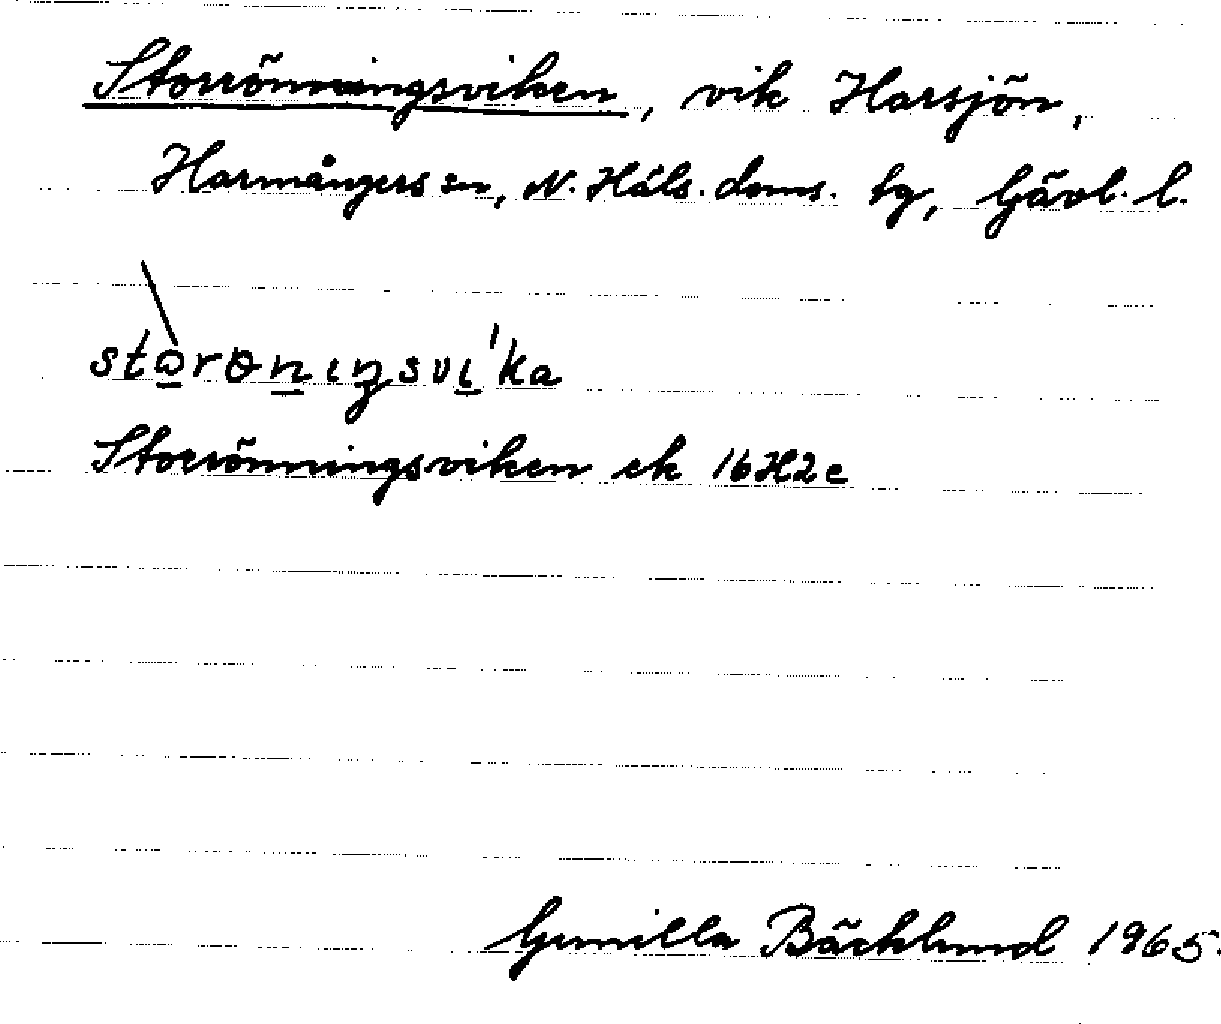 Storrönningsviken, vik Harsjön,
Harmångers sn, N. Häls. doms. tg, Gävl. l.
Storrönningsviken ek 16H2c
Gunilla Bäcklund 1965.